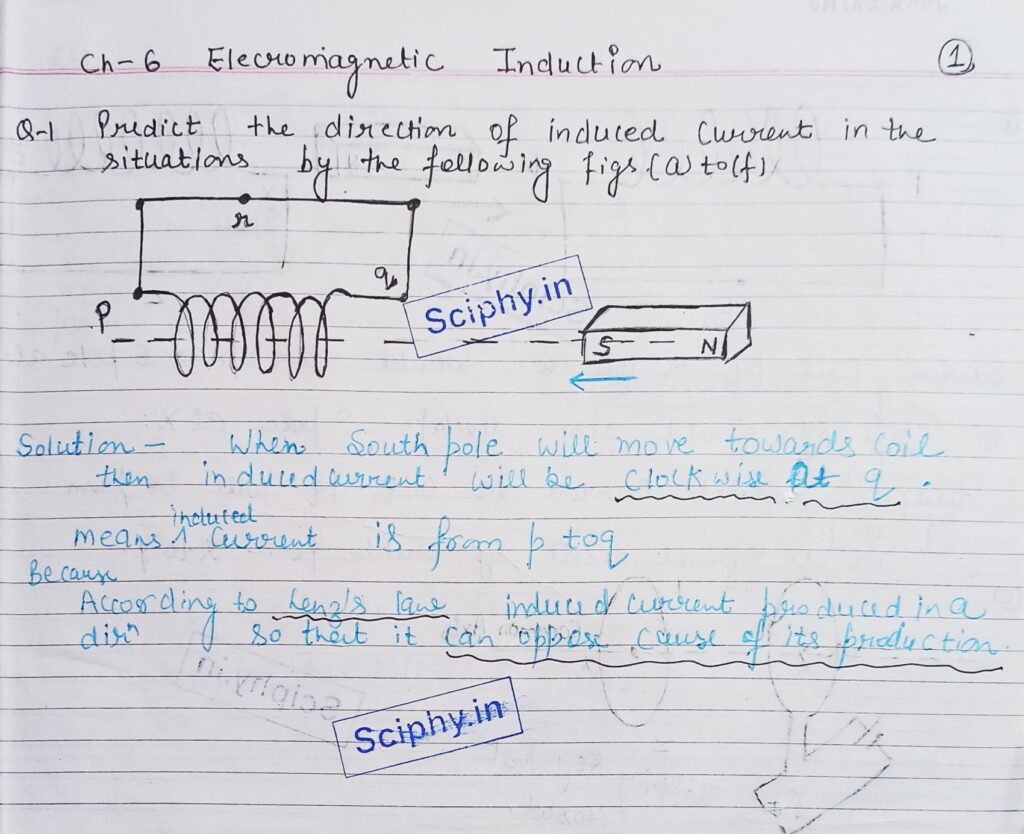 Ch-6 Elecromagnetic Induction
1
Q-1 Predict the direction of induced current in the
situations by the following figs.(a) to(f)
r
q
P
Sciphy.in
S N
Solution - When South pole will move towards coil
then induced current will be clockwise at q.
induced
means current is from p to q
Because
According to Lenz's law induced current produced in a
dirn so that it can oppose cause of its production
Sciphy.in
Sciphy.in